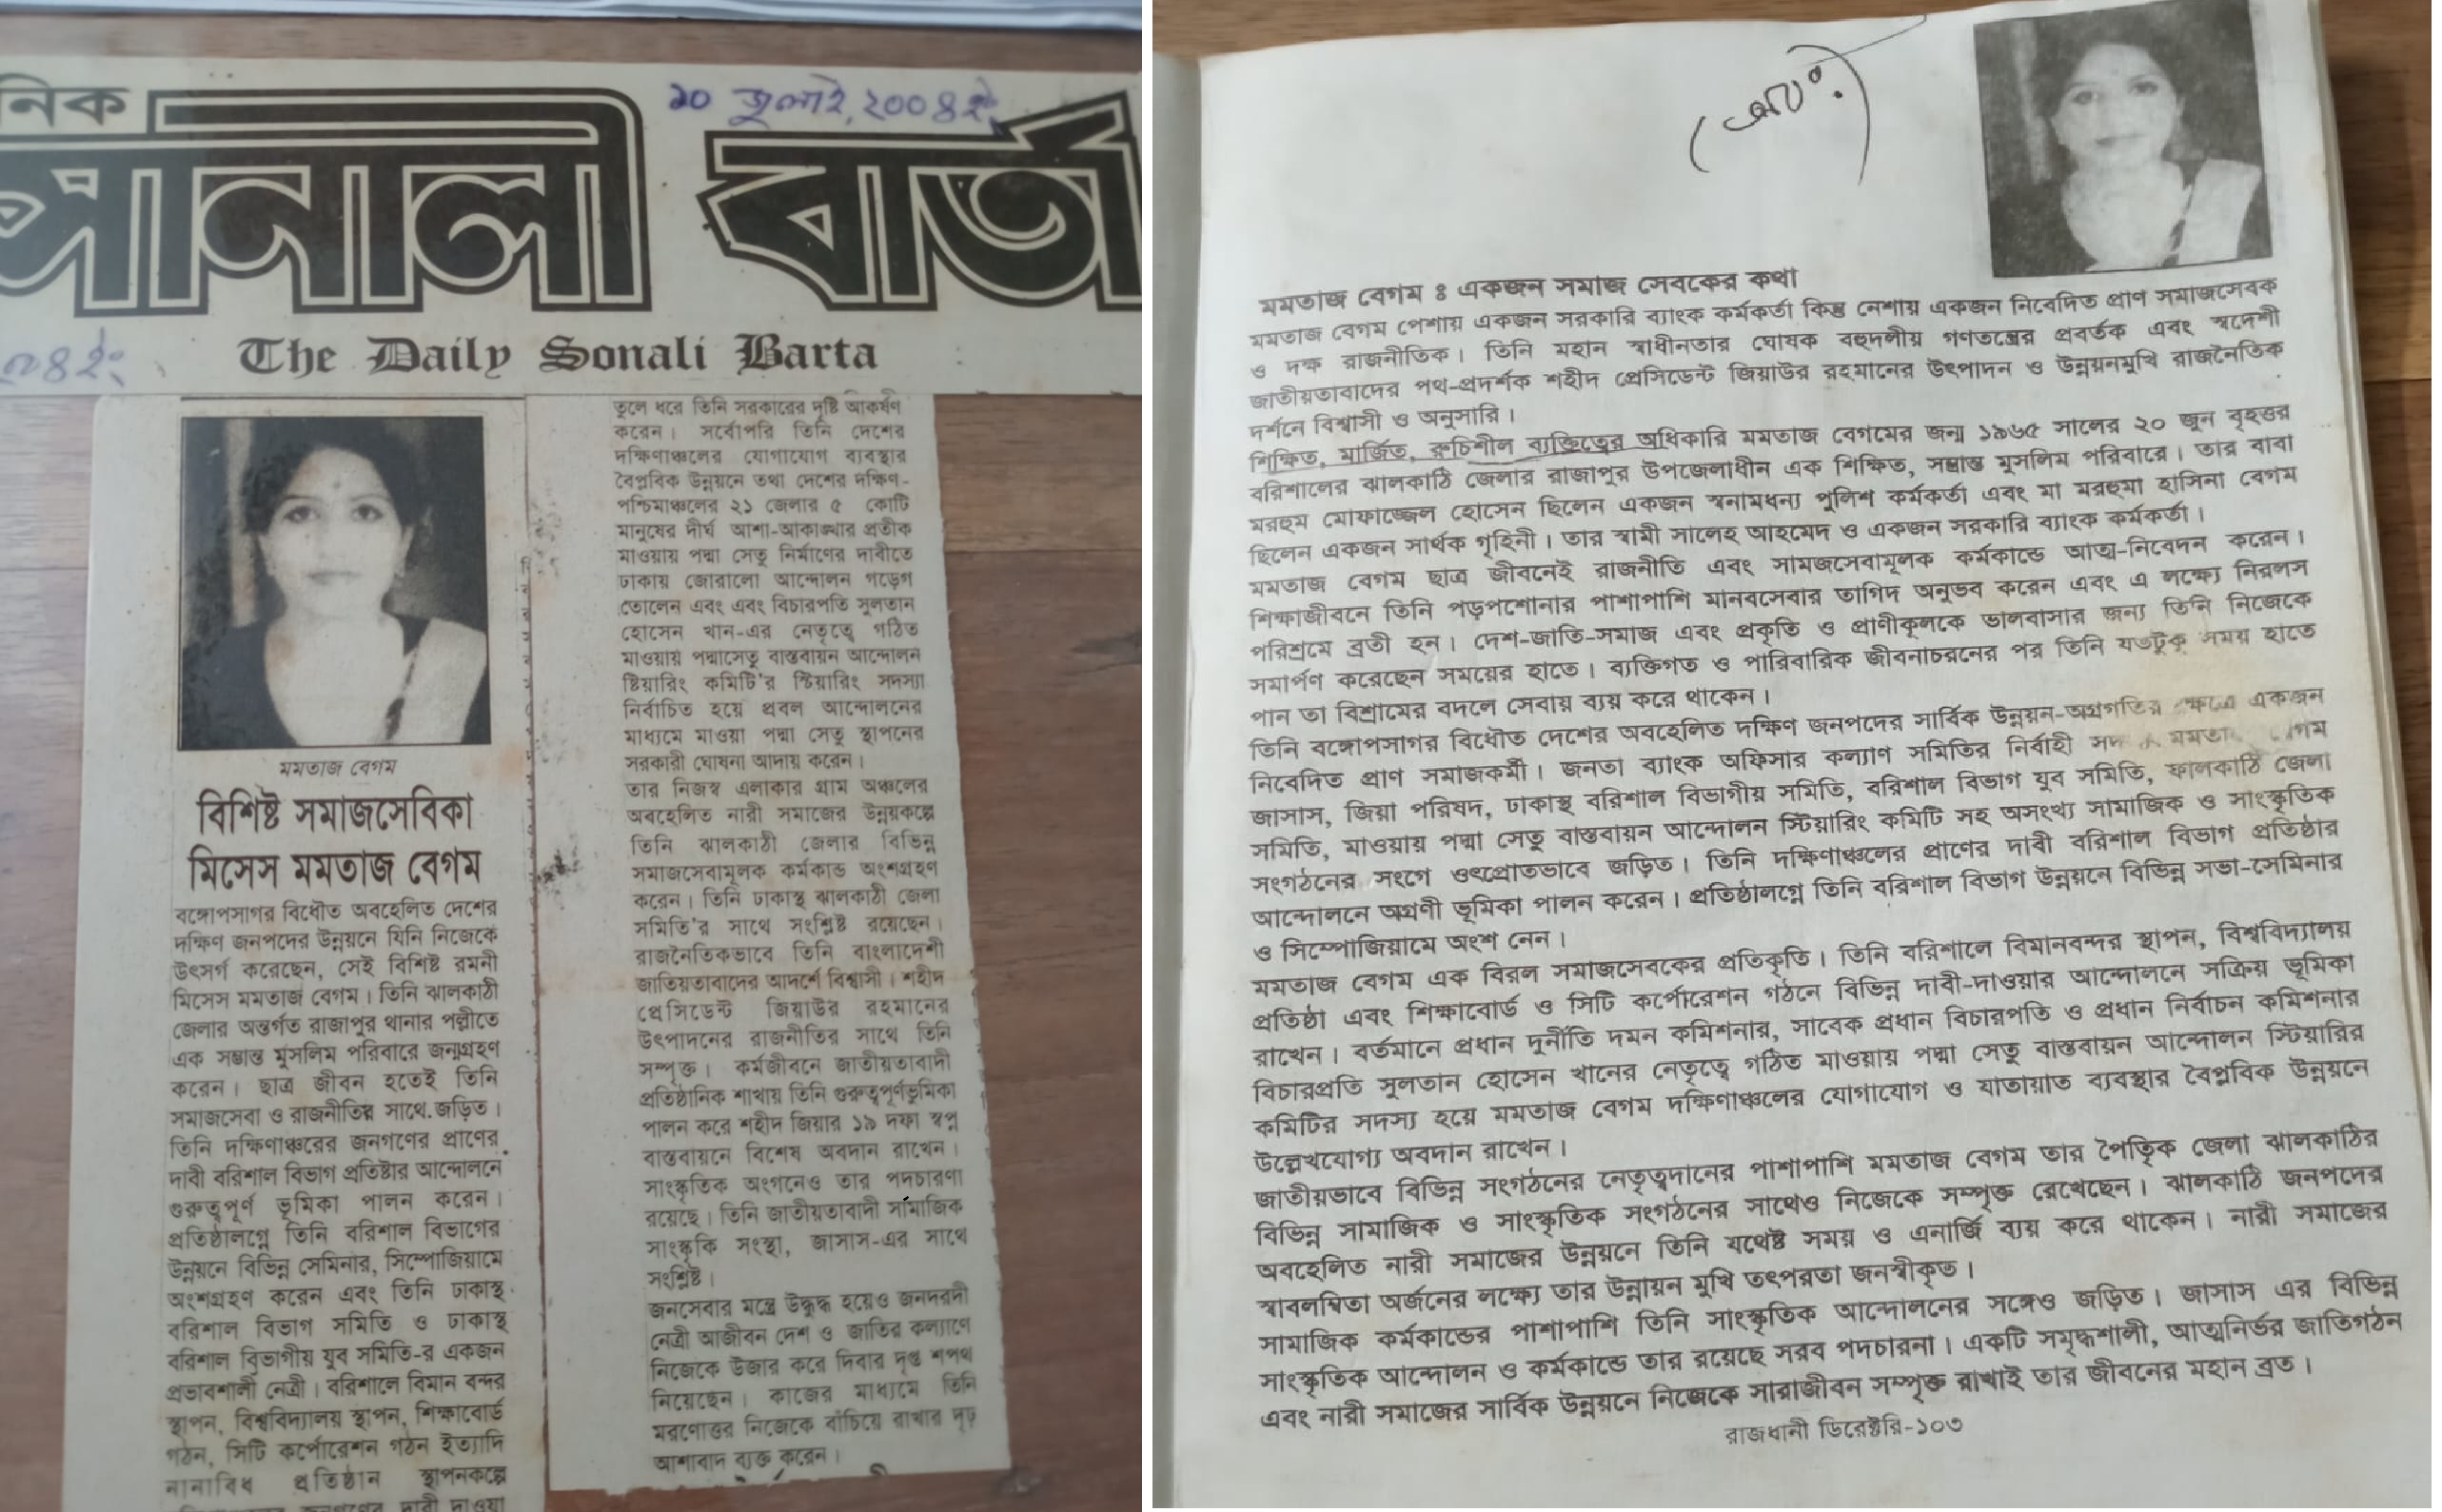 নিক
১০ জুলাই, ২০০৪ইং
সোনালী বার্তা
The Daily Sonali Barta
০৪ইং
মমতাজ বেগম
বিশিষ্ট সমাজসেবিকা
মিসেস মমতাজ বেগম
বঙ্গোপসাগর বিধৌত অবহেলিত দেশের
দক্ষিণ জনপদের উন্নয়নে যিনি নিজেকে
উৎসর্গ করেছেন, সেই বিশিষ্ট রমনী
মিসেস মমতাজ বেগম। তিনি ঝালকাঠী
জেলার অন্তর্গত রাজাপুর থানার পল্লীতে
এক সম্ভ্রান্ত মুসলিম পরিবারে জন্মগ্রহণ
করেন। ছাত্র জীবন হতেই তিনি
সমাজসেবা ও রাজনীতির সাথে জড়িত।
তিনি দক্ষিণাঞ্চরের জনগণের প্রাণের
দাবী বরিশাল বিভাগ প্রতিষ্টার আন্দোলনে
গুরুত্বপূর্ণ ভূমিকা পালন করেন।
প্রতিষ্ঠালগ্নে তিনি বরিশাল বিভাগের
উন্নয়নে বিভিন্ন সেমিনার, সিম্পোজিয়ামে
অংশগ্রহণ করেন এবং তিনি ঢাকাস্থ
বরিশাল বিভাগ সমিতি ও ঢাকাস্থ
বরিশাল বিভাগীয় যুব সমিতি-র একজন
প্রভাবশালী নেত্রী। বরিশালে বিমান বন্দর
স্থাপন, বিশ্ববিদ্যালয় স্থাপন, শিক্ষাবোর্ড
গঠন, সিটি কর্পোরেশন গঠন ইত্যাদি
নানাবিধ প্রতিষ্ঠান স্থাপনকল্পে
জনগণের দাবী দাওয়া
তুলে ধরে তিনি সরকারের দৃষ্টি আকর্ষণ
করেন। সর্বোপরি তিনি দেশের
দক্ষিণাঞ্চলের যোগাযোগ ব্যবস্থার
বৈপ্লবিক উন্নয়নে তথা দেশের দক্ষিণ-
পশ্চিমাঞ্চলের ২১ জেলার ৫ কোটি
মানুষের দীর্ঘ আশা-আকাঙ্খার প্রতীক
মাওয়ায় পদ্মা সেতু নির্মাণের দাবীতে
ঢাকায় জোরালো আন্দোলন গড়েগ
তোলেন এবং এবং বিচারপতি সুলতান
হোসেন খান-এর নেতৃত্বে গঠিত
মাওয়ায় পদ্মাসেতু বাস্তবায়ন আন্দোলন
ষ্টিয়ারিং কমিটি'র স্টিয়ারিং সদস্যা
নির্বাচিত হয়ে প্রবল আন্দোলনের
মাধ্যমে মাওয়া পদ্মা সেতু স্থাপনের
সরকারী ঘোষনা আদায় করেন।
তার নিজস্ব এলাকার গ্রাম অঞ্চলের
অবহেলিত নারী সমাজের উন্নয়কল্পে
তিনি ঝালকাঠী জেলার বিভিন্ন
সমাজসেবামূলক কর্মকান্ড অংশগ্রহণ
করেন। তিনি ঢাকাস্থ ঝালকাঠী জেলা
সমিতি'র সাথে সংশ্লিষ্ট রয়েছেন।
রাজনৈতিকভাবে তিনি বাংলাদেশী
জাতিয়তাবাদের আদর্শে বিশ্বাসী। শহীদ
প্রেসিডেন্ট জিয়াউর রহমানের
উৎপাদনের রাজনীতির সাথে তিনি
সম্পৃক্ত। কর্মজীবনে জাতীয়তাবাদী
প্রতিষ্ঠানিক শাখায় তিনি গুরুত্বপূর্ণভূমিকা
পালন করে শহীদ জিয়ার ১৯ দফা স্বপ্ন
বাস্তবায়নে বিশেষ অবদান রাখেন।
সাংস্কৃতিক অংগনেও তার পদচারণা
রয়েছে। তিনি জাতীয়তাবাদী সামাজিক
সাংস্কৃকি সংস্থা, জাসাস-এর সাথে
সংশ্লিষ্ট।
জনসেবার মন্ত্রে উদ্ধুদ্ধ হয়েও জনদরদী
নেত্রী আজীবন দেশ ও জাতির কল্যাণে
নিজেকে উজার করে দিবার দৃপ্ত শপথ
নিয়েছেন। কাজের মাধ্যমে তিনি
মরণোত্তর নিজেকে বাঁচিয়ে রাখার দৃঢ়
আশাবাদ ব্যক্ত করেন।
মমতাজ বেগম ঃ একজন সমাজ সেবকের কথা
মমতাজ বেগম পেশায় একজন সরকারি ব্যাংক কর্মকর্তা কিন্তু নেশায় একজন নিবেদিত প্রাণ সমাজসেবক
ও দক্ষ রাজনীতিক। তিনি মহান স্বাধীনতার ঘোষক বহুদলীয় গণতন্ত্রের প্রবর্তক এবং স্বদেশী
জাতীয়তাবাদের পথ-প্রদর্শক শহীদ প্রেসিডেন্ট জিয়াউর রহমানের উৎপাদন ও উন্নয়নমুখি রাজনৈতিক
দর্শনে বিশ্বাসী ও অনুসারি।
শিক্ষিত, মার্জিত, রুচিশীল ব্যক্তিত্বের অধিকারি মমতাজ বেগমের জন্ম ১৯৬৫ সালের ২০ জুন বৃহত্তর
বরিশালের ঝালকাঠি জেলার রাজাপুর উপজেলাধীন এক শিক্ষিত, সম্ভ্রান্ত মুসলিম পরিবারে। তার বাবা
মরহুম মোফাজ্জেল হোসেন ছিলেন একজন স্বনামধন্য পুলিশ কর্মকর্তা এবং মা মরহুমা হাসিনা বেগম
ছিলেন একজন সার্থক গৃহিনী। তার স্বামী সালেহ আহমেদ ও একজন সরকারি ব্যাংক কর্মকর্তা।
মমতাজ বেগম ছাত্র জীবনেই রাজনীতি এবং সামজসেবামূলক কর্মকান্ডে আত্ম-নিবেদন করেন।
শিক্ষাজীবনে তিনি পড়পশোনার পাশাপাশি মানবসেবার তাগিদ অনুভব করেন এবং এ লক্ষ্যে নিরলস
পরিশ্রমে ব্রতী হন। দেশ-জাতি-সমাজ এবং প্রকৃতি ও প্রাণীকূলকে ভালবাসার জন্য তিনি নিজেকে
সমার্পণ করেছেন সময়ের হাতে। ব্যক্তিগত ও পারিবারিক জীবনাচরনের পর তিনি যতটুক সময় হাতে
পান তা বিশ্রামের বদলে সেবায় ব্যয় করে থাকেন।
তিনি বঙ্গোপসাগর বিধৌত দেশের অবহেলিত দক্ষিণ জনপদের সার্বিক উন্নয়ন-অগ্রগতির ক্ষেত্রে একজন
নিবেদিত প্রাণ সমাজকর্মী। জনতা ব্যাংক অফিসার কল্যাণ সমিতির নির্বাহী মমতাজ বেগম
জাসাস, জিয়া পরিষদ, ঢাকাস্থ বরিশাল বিভাগীয় সমিতি, বরিশাল বিভাগ যুব সমিতি, ঝালকাঠি জেলা
সমিতি, মাওয়ায় পদ্মা সেতু বাস্তবায়ন আন্দোলন স্টিয়ারিং কমিটি সহ অসংখ্য সামাজিক ও সাংস্কৃতিক
সংগঠনের সংগে ওৎপ্রোতভাবে জড়িত। তিনি দক্ষিণাঞ্চলের প্রাণের দাবী বরিশাল বিভাগ প্রতিষ্ঠার
আন্দোলনে অগ্রণী ভূমিকা পালন করেন। প্রতিষ্ঠালগ্নে তিনি বরিশাল বিভাগ উন্নয়নে বিভিন্ন সভা-সেমিনার
ও সিম্পোজিয়ামে অংশ নেন।
মমতাজ বেগম এক বিরল সমাজসেবকের প্রতিকৃতি। তিনি বরিশালে বিমানবন্দর স্থাপন, বিশ্ববিদ্যালয়
প্রতিষ্ঠা এবং শিক্ষাবোর্ড ও সিটি কর্পোরেশন গঠনে বিভিন্ন দাবী-দাওয়ার আন্দোলনে সক্রিয় ভূমিকা
রাখেন। বর্তমানে প্রধান দুর্নীতি দমন কমিশনার, সাবেক প্রধান বিচারপতি ও প্রধান নির্বাচন কমিশনার
বিচারপ্রতি সুলতান হোসেন খানের নেতৃত্বে গঠিত মাওয়ায় পদ্মা সেতু বাস্তবায়ন আন্দোলন স্টিয়ারির
কমিটির সদস্য হয়ে মমতাজ বেগম দক্ষিণাঞ্চলের যোগাযোগ ও যাতায়াত ব্যবস্থার বৈপ্লবিক উন্নয়নে
উল্লেখযোগ্য অবদান রাখেন।
জাতীয়ভাবে বিভিন্ন সংগঠনের নেতৃত্বদানের পাশাপাশি মমতাজ বেগম তার পৈতৃিক জেলা ঝালকাঠির
বিভিন্ন সামাজিক ও সাংস্কৃতিক সংগঠনের সাথেও নিজেকে সম্পৃক্ত রেখেছেন। ঝালকাঠি জনপদের
অবহেলিত নারী সমাজের উন্নয়নে তিনি যথেষ্ট সময় ও এনার্জি ব্যয় করে থাকেন। নারী সমাজের
স্বাবলম্বিতা অর্জনের লক্ষ্যে তার উন্নায়ন মুখি তৎপরতা জনস্বীকৃত।
সামাজিক কর্মকান্ডের পাশাপাশি তিনি সাংস্কৃতিক আন্দোলনের সঙ্গেও জড়িত। জাসাস এর বিভিন্ন
সাংস্কৃতিক আন্দোলন ও কর্মকান্ডে তার রয়েছে সরব পদচারনা। একটি সমৃদ্ধশালী, আত্মনির্ভর জাতিগঠন
এবং নারী সমাজের সার্বিক উন্নয়নে নিজেকে সারাজীবন সম্পৃক্ত রাখাই তার জীবনের মহান ব্রত।
রাজধানী ডিরেক্টরি-১০৩